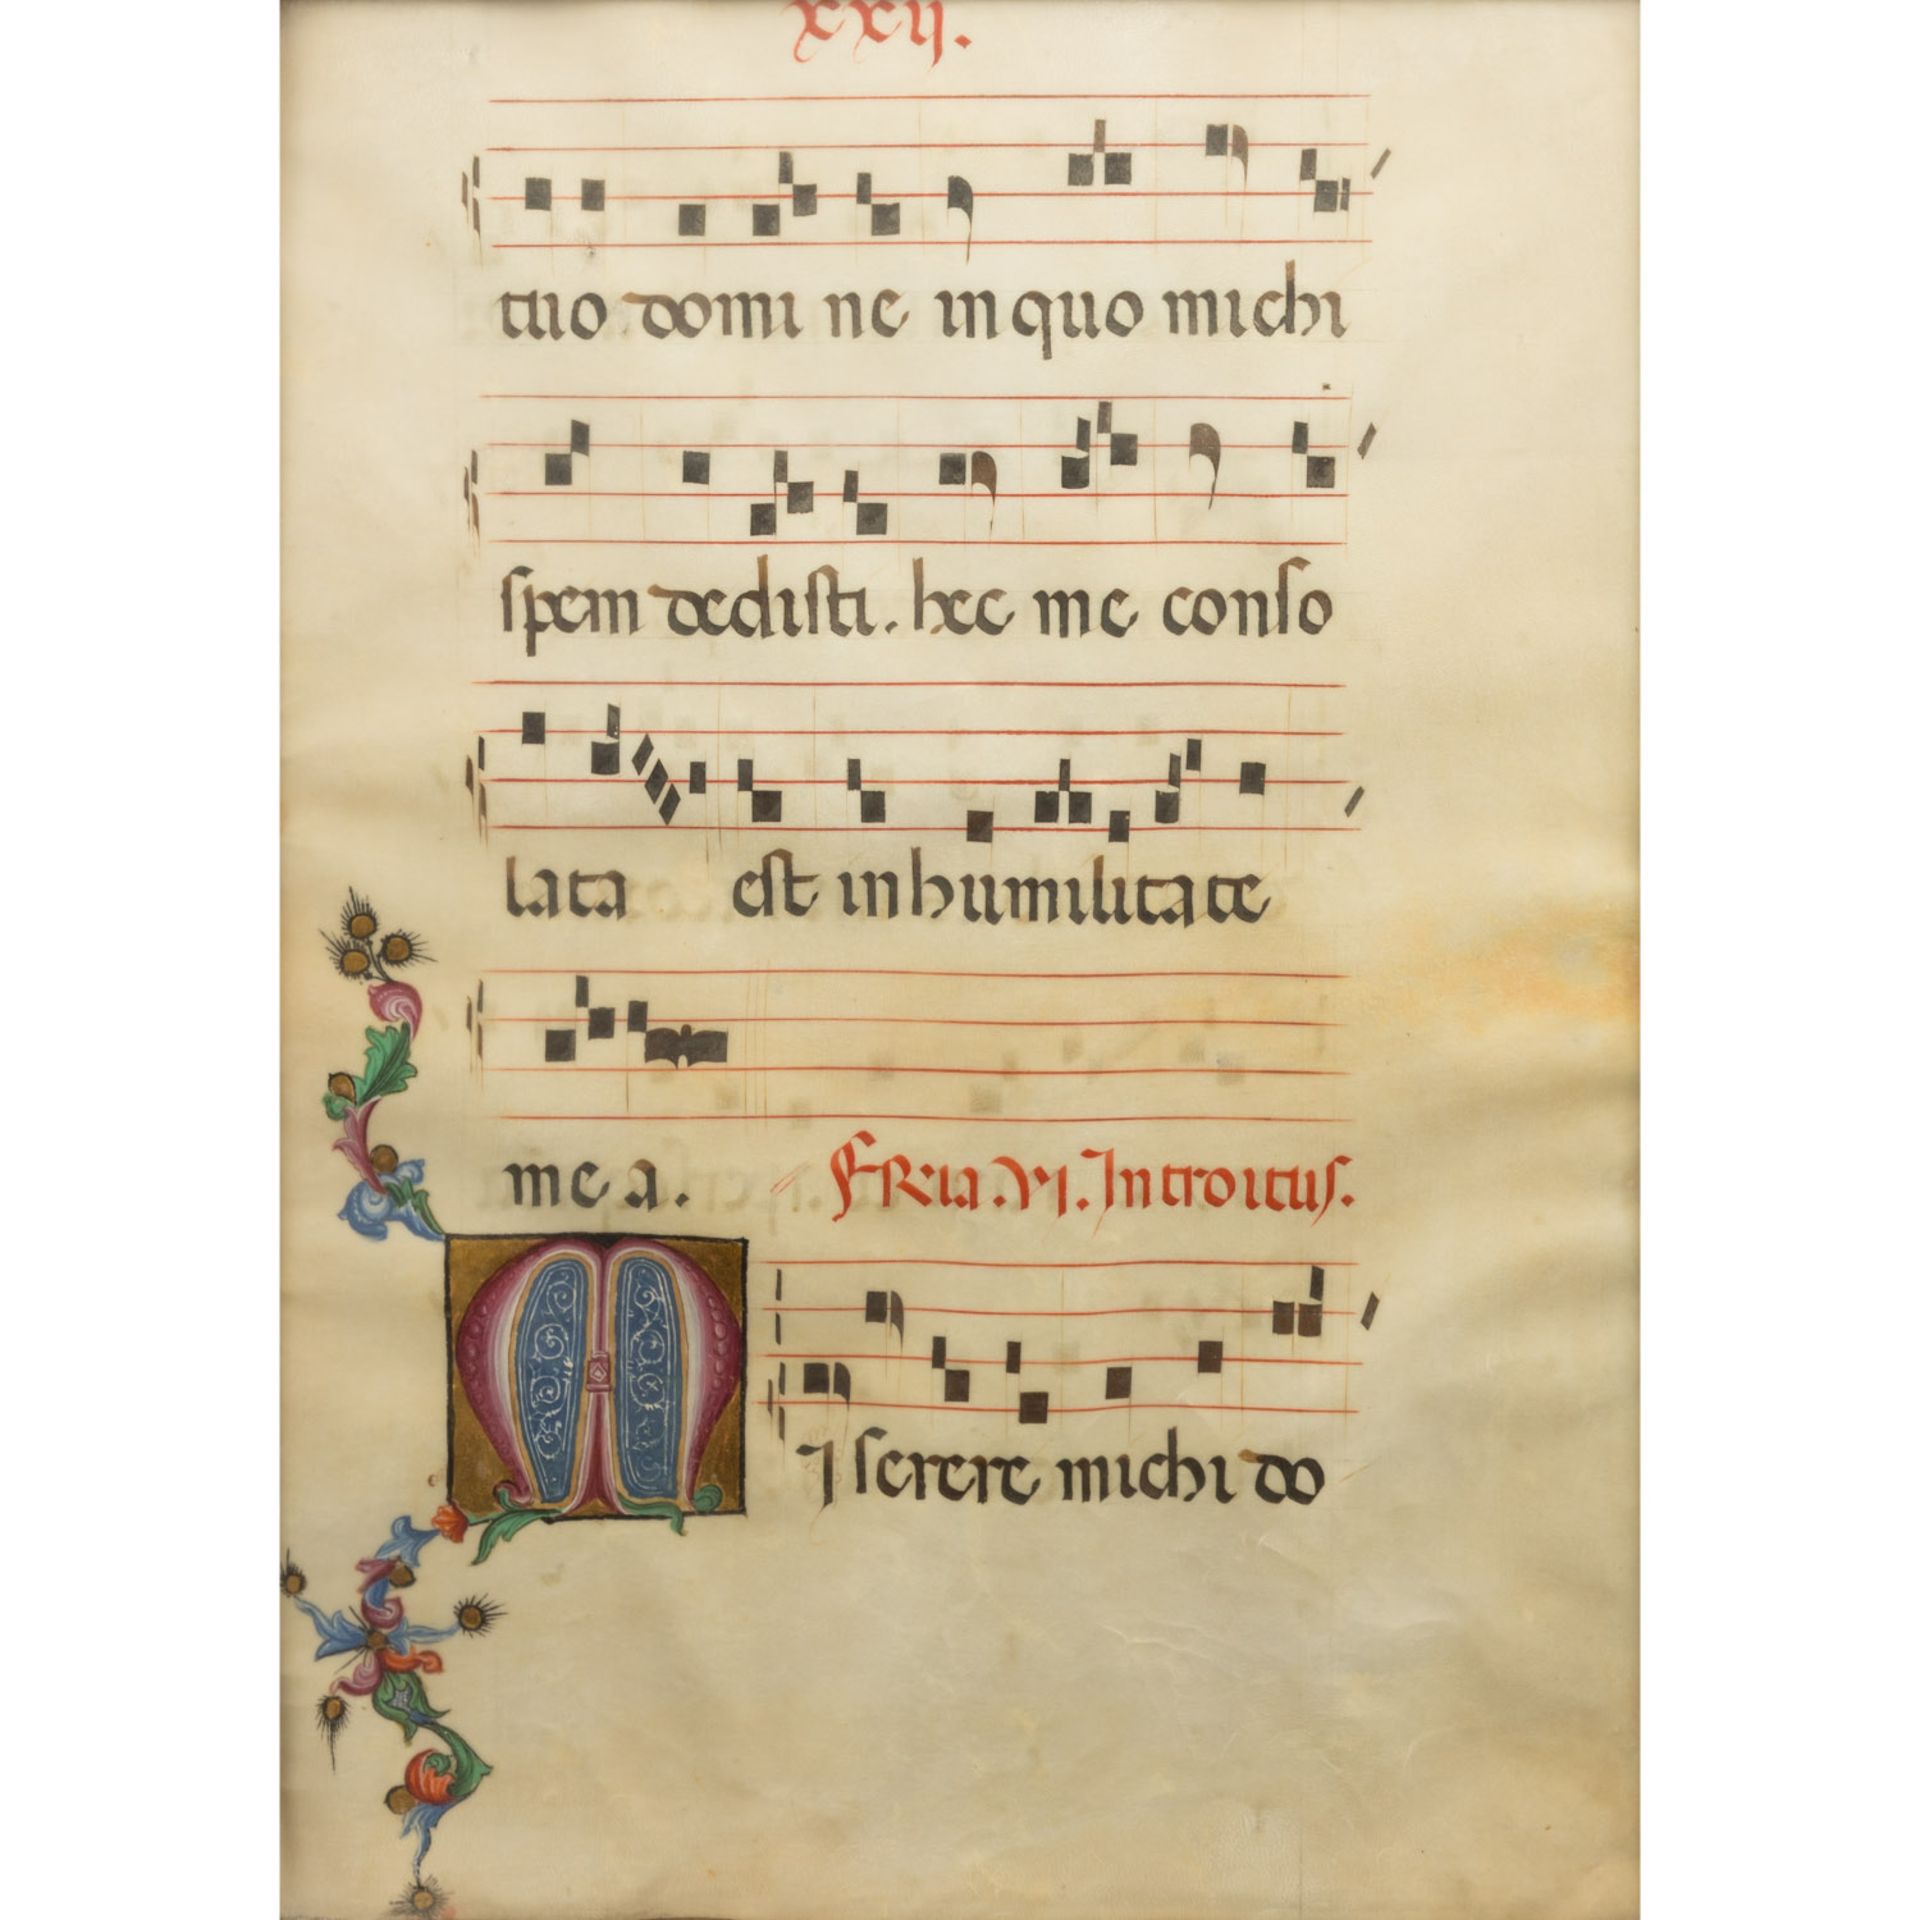 xxij.
tuo domi ne in quo michi
spem dedisti. hec me conso
lata est in humilitate
me a. FERia. VI. Introitus.
MIserere michi do